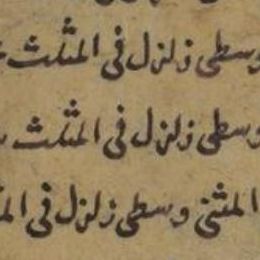 وسطى زلزل فى المثلث
وسطى زلزل فى المثلث
المثنى وسطى زلزل فى